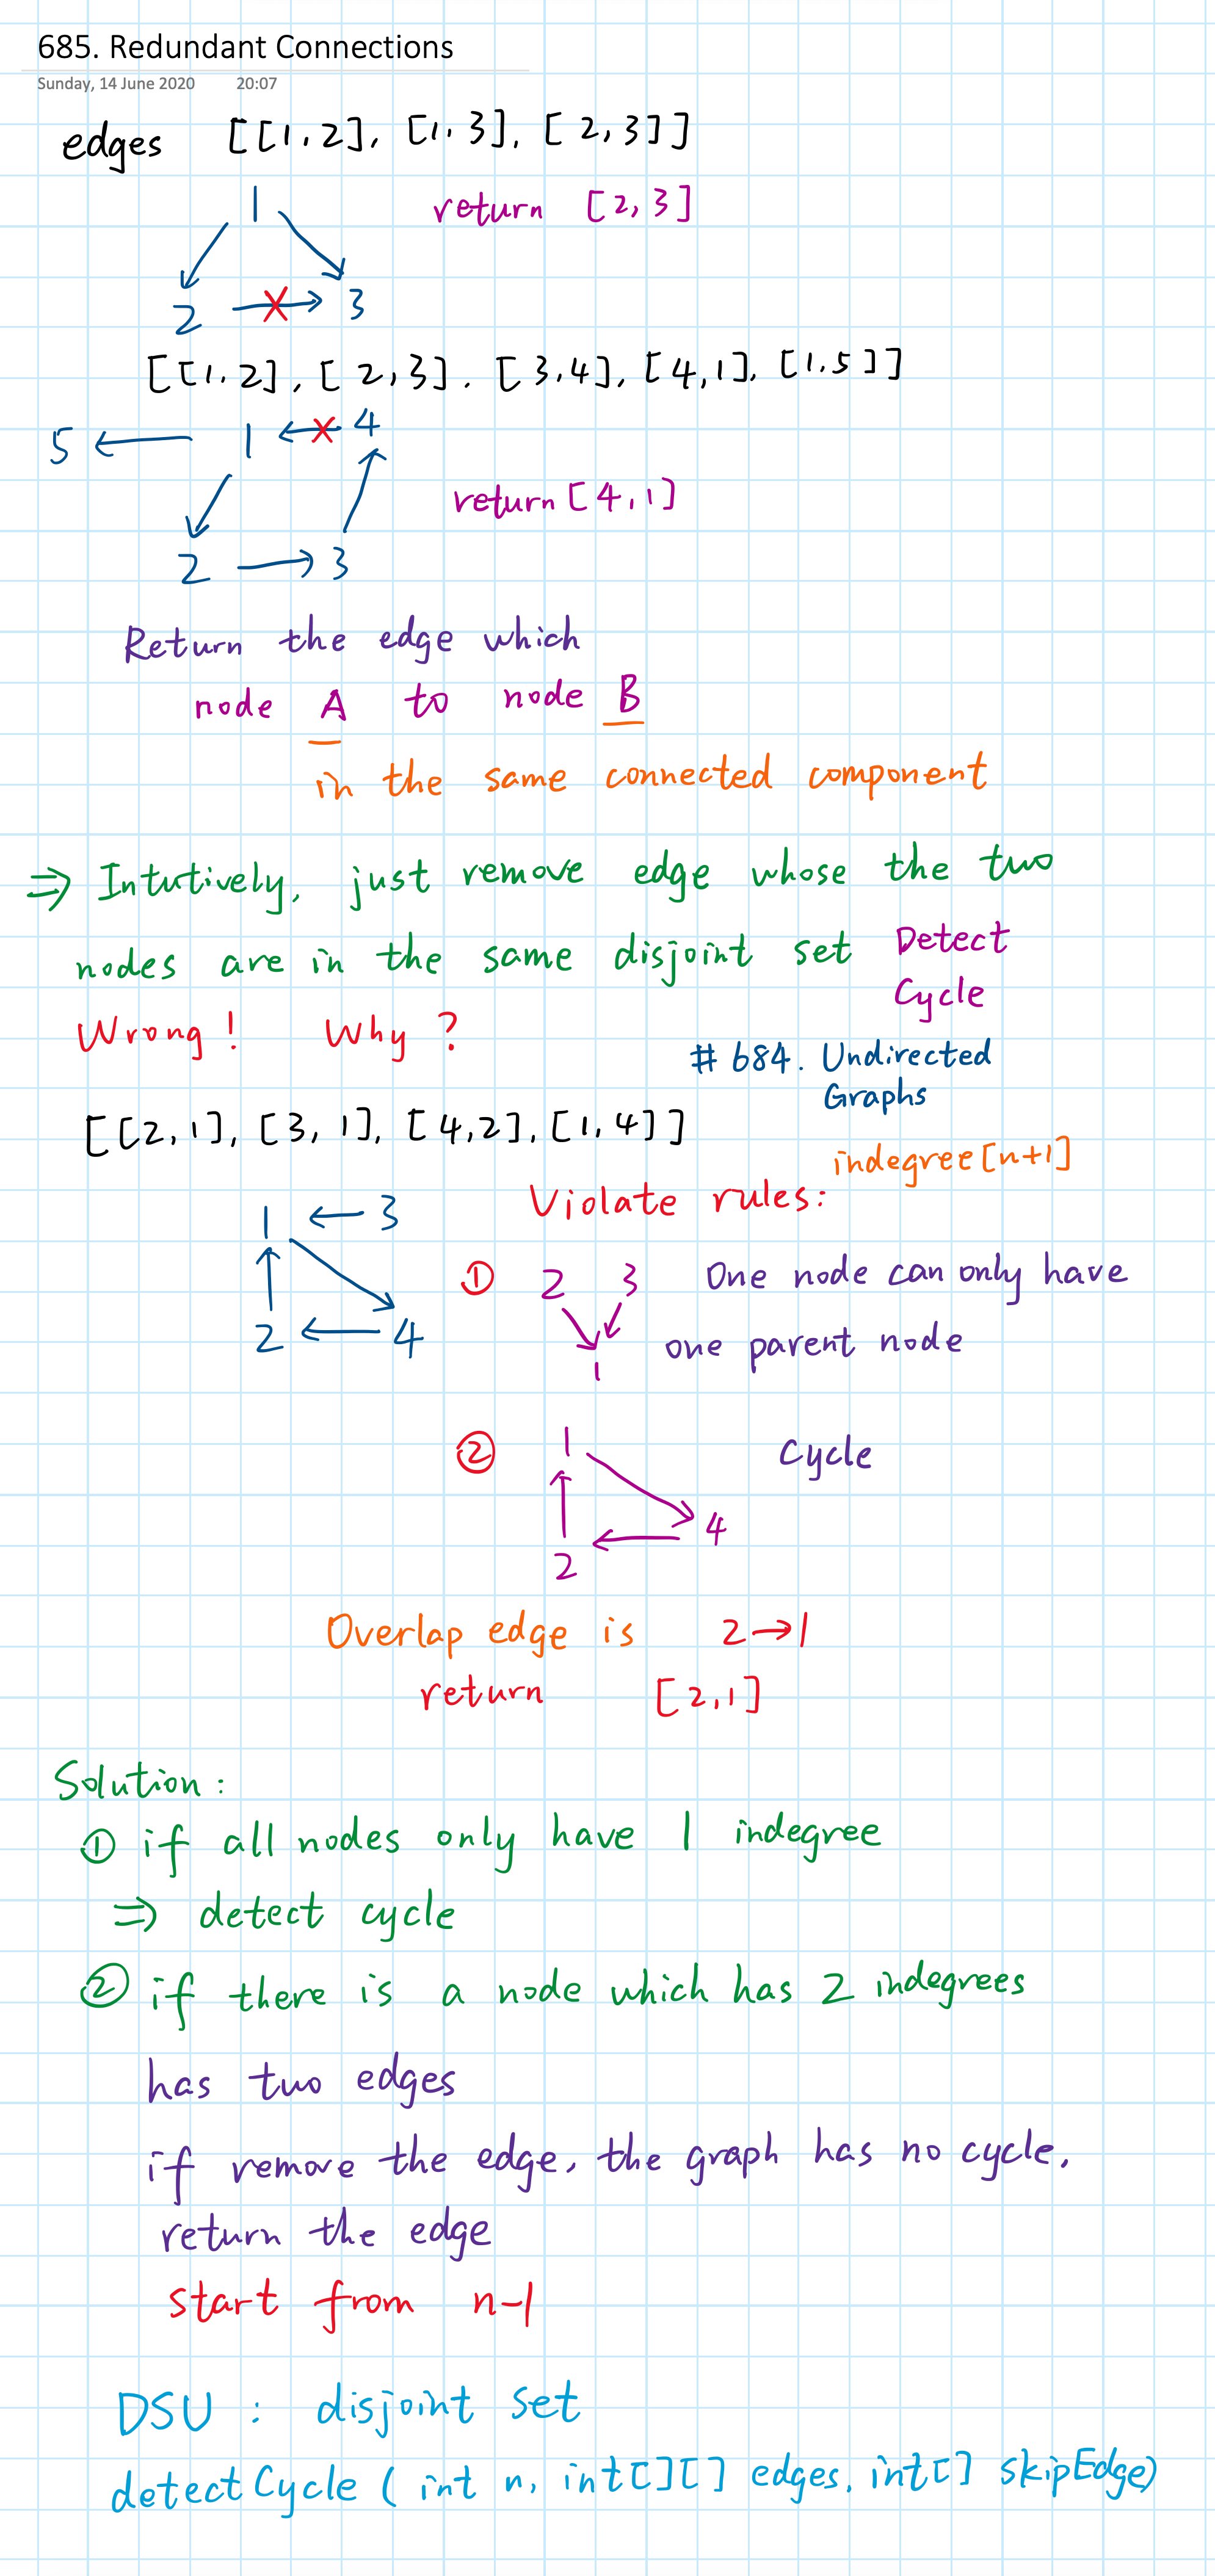 685. Redundant Connections
Sunday, 14 June 2020 20:07
edges [[1,2], [1,3], [2,3]]
1
return [2,3]
2 3
[[1,2], [2,3], [3,4], [4,1], [1,5]]
5 ← 1 ← 4
return [4,1]
2 → 3
Return the edge which
node A to node B
in the same connected component
⇒ Intutively, just remove edge whose the two
nodes are in the same disjoint set
Detect
Cycle
Wrong! Why?
# 684. Undirected
Graphs
[[2,1], [3,1], [4,2], [1,4]]
indegree[n+1]
Violate rules:
1 ← 3
2 ← 4
① 2 3 One node can only have
1 one parent node
② 1 Cycle
4
2
Overlap edge is 2→1
return [2,1]
Solution:
① if all nodes only have 1 indegree
⇒ detect cycle
② if there is a node which has 2 indegrees
has two edges
if remove the edge, the graph has no cycle.
return the edge
start from n-1
DSU : disjoint set
detectCycle (int n, int[][] edges, int[] skipEdge)